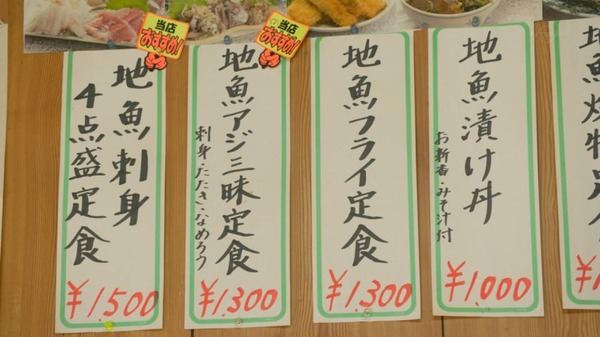 当店
おすすめ!
地魚刺身
4点盛定食
¥1.500
当店
おすすめ!
地魚アジ三昧定食
刺身・たたき・なめろう
¥1.300
地魚フライ定食
¥1.300
地魚漬け丼
お新香・みそ汁付
¥1.000
地魚焼物定食